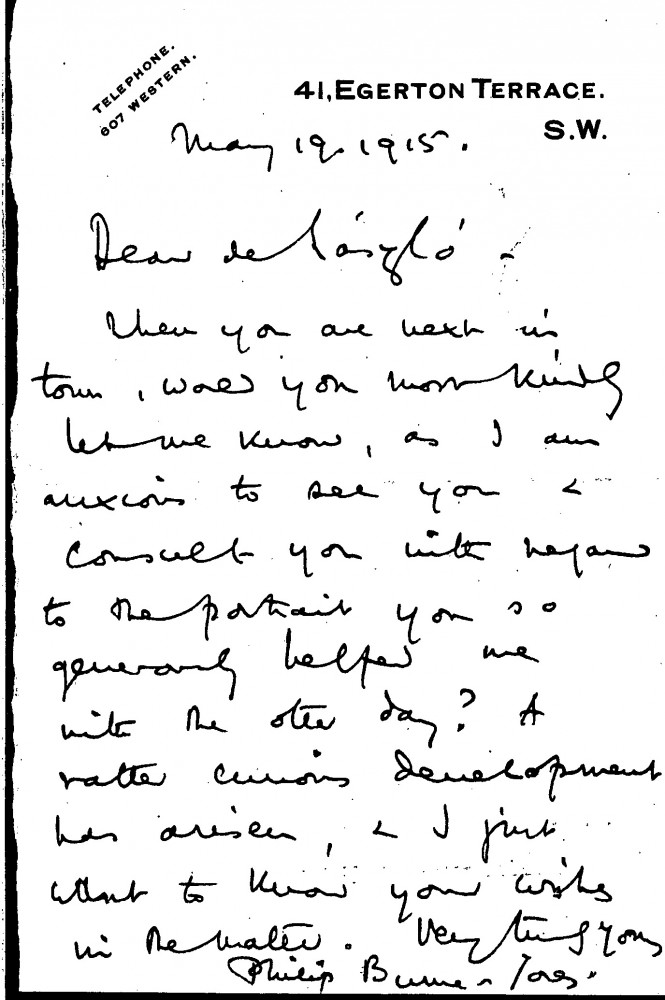 TELEPHONE.
607 WESTERN.
41, EGERTON TERRACE.
S.W.
May 19. 1915.
Dear de László -
When you are next in
town, would you most kindly
let me know, as I am
anxious to see you &
consult you with regard
to the portrait you so
generously helped me
with the other day? A
rather curious development
has arisen, & I just
want to know your wishes
in the matter. Very truly yours
Philip Burne-Jones.